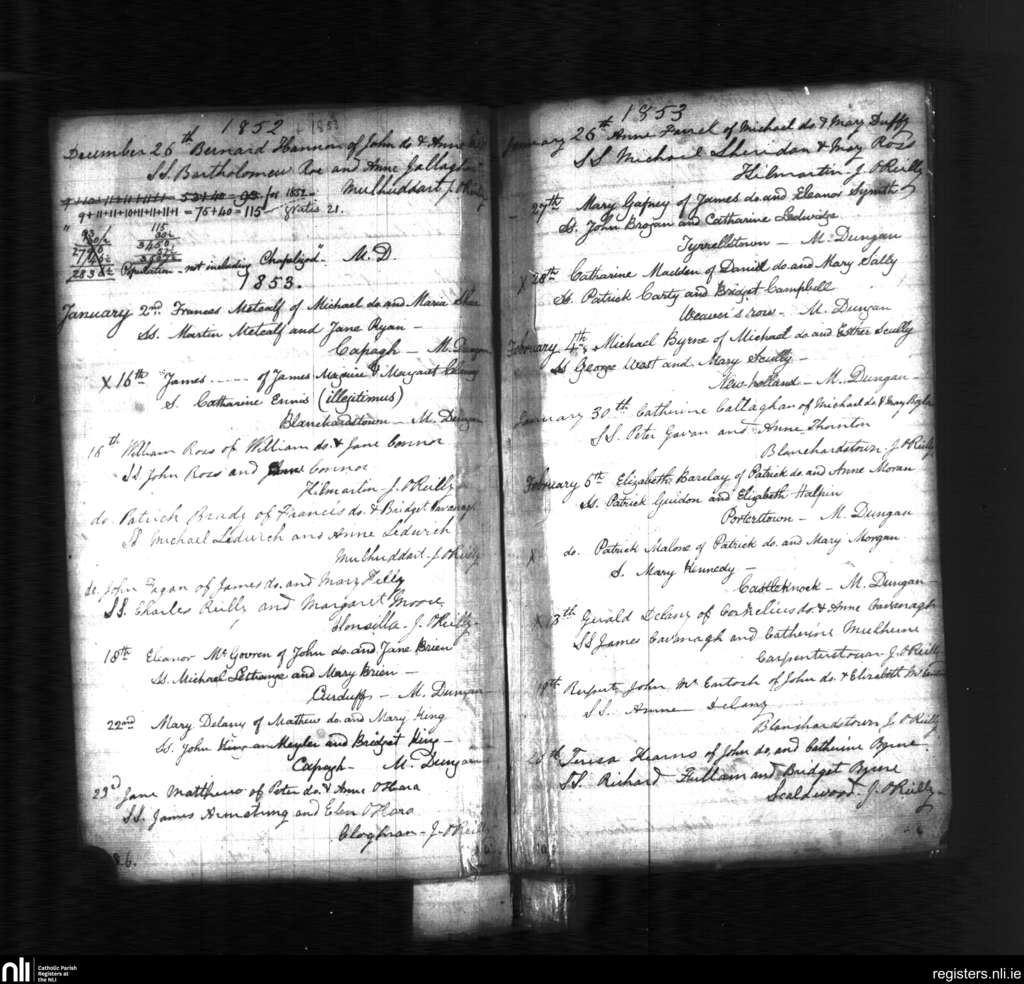 1852
+ 1853
December 26th Bernard Hannon of John do & Anne
SS. Bartholomew Roe and Anne Gallagher
Mulhuddart J. O'Reilly
53+40 = 93 for 1852
9+11+11+10+11+11+1 = 75+40=115 Gratis 21.
93
115
30½
30½
2790
3450
2836½
Population - not including "Chapelizod" M. D.
1853.
January 2nd Frances Metcalf of Michael do and Maria
Ss. Martin Metcalf and Jane Ryan -
Capagh - M. Dungan
X 16th James ...... of James Maguire & Margaret
S. Catharine Ennis (illegitimus)
Blanchardstown - M. Dungan
16th William Ross of William do. & Jane Connor
SS John Ross and Connor
Kilmartin J. O'Reilly
do. Patrick Brady of Francis do. & Bridget Kavanagh
SS Michael Ledwich and Anne Ledwich
Mulhuddart J. O'Reilly
do. John Fagan of James do. and Mary
SS. Charles Reilly and Margaret Moore
Clonsilla J. O'Reilly
18th Eleanor Mc Govren of John do. and Jane Brien
Ss. Michael Lestrange and Mary Brien -
Curduff - M. Dungan
22nd Mary Delany of Mathew do. and Mary King
Ss. John King and Bridget King -
Capagh - M. Dungan
23d Jane Matthews of Peter do. & Anne O'Hara
SS. James Armstrong and Elen O'Hara
Cloghran - J. O'Reilly
86.
1853
January 26th Anne Farrel of Michael do & Mary Duffy
SS Michael Sheridan & May Ross
Kilmartin - J. O'Reilly
- 27th Mary Gafney of James do. and Eleanor Smith
Ss. John Brogan and Catharine Ledwidge
Tyrrellstown - M. Dungan
X 28th Catharine Madden of Daniel do. and Mary Sally
Ss. Patrick Carty and Bridget Campbell
Weaver's row - M. Dungan
February 4th Michael Byrne of Michael do and Esther Scully
Ss George West and Mary Scully -
New-holland - M. Dungan -
January 30th Catherine Callaghan of Michael do & Mary
SS. Peter Gavan and Anne Thornton
Blanchardstown J. O'Reilly
February 6th Elizabeth Barclay of Patrick do and Anne Moran
Ss. Patrick Guidon and Elizabeth Halpin
Porterstown - M. Dungan
X do. Patrick Malone of Patrick do. and Mary Morgan
S. Mary Kennedy -
Castleknock - M. Dungan
X 13th Gerald Delany of Cornelius do & Anne Cavenagh
SS James Cavanagh and Catherine Mulherne
Carpenterstown J. O'Reilly
19th Rupert John Mc Eantosh of John do. & Elizabeth
SS. Anne Delany
Blanchardstown J. O'Reilly
26th Teresa Kearns of John do. and Catherine Byrne
SS. Richard Fullam and Bridget Byrne
Scaldwood. J. O'Reilly
nli
Catholic Parish
Registers at
the NLI
registers.nli.ie